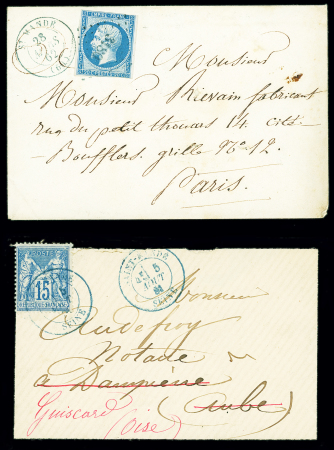 ST MANDÉ
23
5
62
(60)
EMPIRE FRANC
Monsieur
Monsieur Rievain fabricant
rue du petit thouars 14. cité
Boufflers, grille No 12
Paris.
POSTES
15
SAINT-MANDÉ
5
AOUT
SEINE
SEINE
Monsieur
Audefroy
Notaire
à Dampierre
(Aube)
Guiscard (Oise)